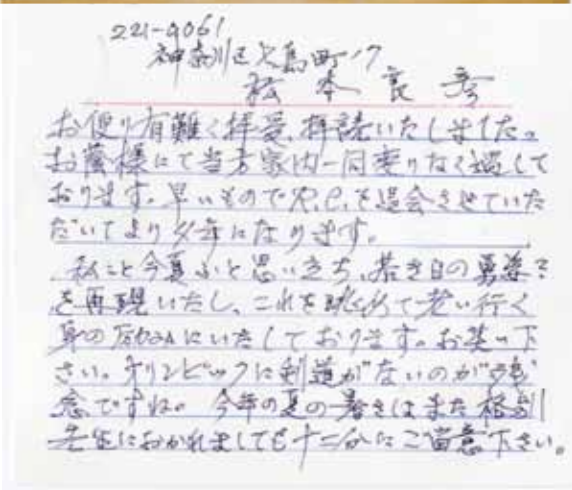 221-0061
神奈川区七島町17
松本良彦
お便り有難く拝受、拝読いたしました。
お蔭様にて当方家内一同変りなく過して
おります。早いものでR.C.を退会させていた
だいてより夕年になります。
私こと今夏ふと思い立ち、若き日の勇姿を
を再現いたし、これを眺めて老い行く
身の励みにいたしております。お笑い下
さい。オリンピックに剣道がないのが残
念ですね。今年の夏の暑さはまた格別
先生におかれましても十二分にご留意下さい。